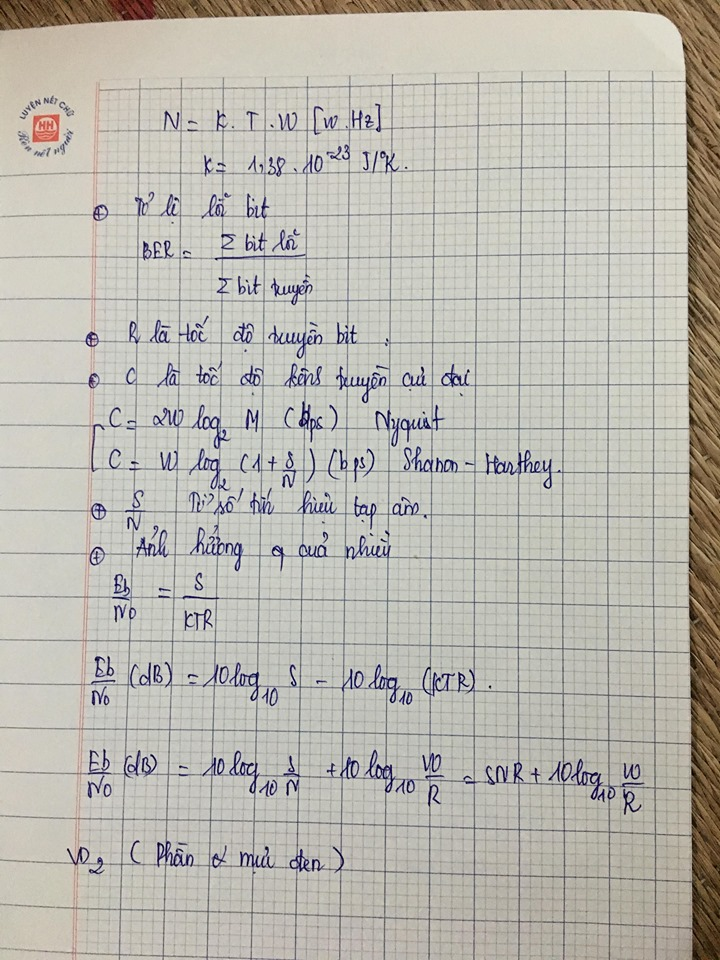 LUYỆN NÉT CHỮ
HH
Rèn nết người
N = K. T. W [W.Hz]
K = 1,38 . 10^-23 J/°K.
⊕ Tỉ lệ lỗi bit
BER = Σ bit lỗi / Σ bit truyền
⊕ R là tốc độ truyền bit .
⊕ C là tốc độ kênh truyền cực đại
C = 2W log₂ M (bps) Nyquist
C = W log₂ (1 + S/N) (bps) Shanon - Harthey.
⊕ S/N Tỉ số tín hiệu tạp âm.
⊕ Ảnh hưởng của nhiễu
Eb/No = S/KTR
Eb/No (dB) = 10 log₁₀ S - 10 log₁₀ (KTR) .
Eb/No (dB) = 10 log₁₀ S/N + 10 log₁₀ W/R = SNR + 10 log₁₀ W/R
VD₂ ( Phần mực đen )